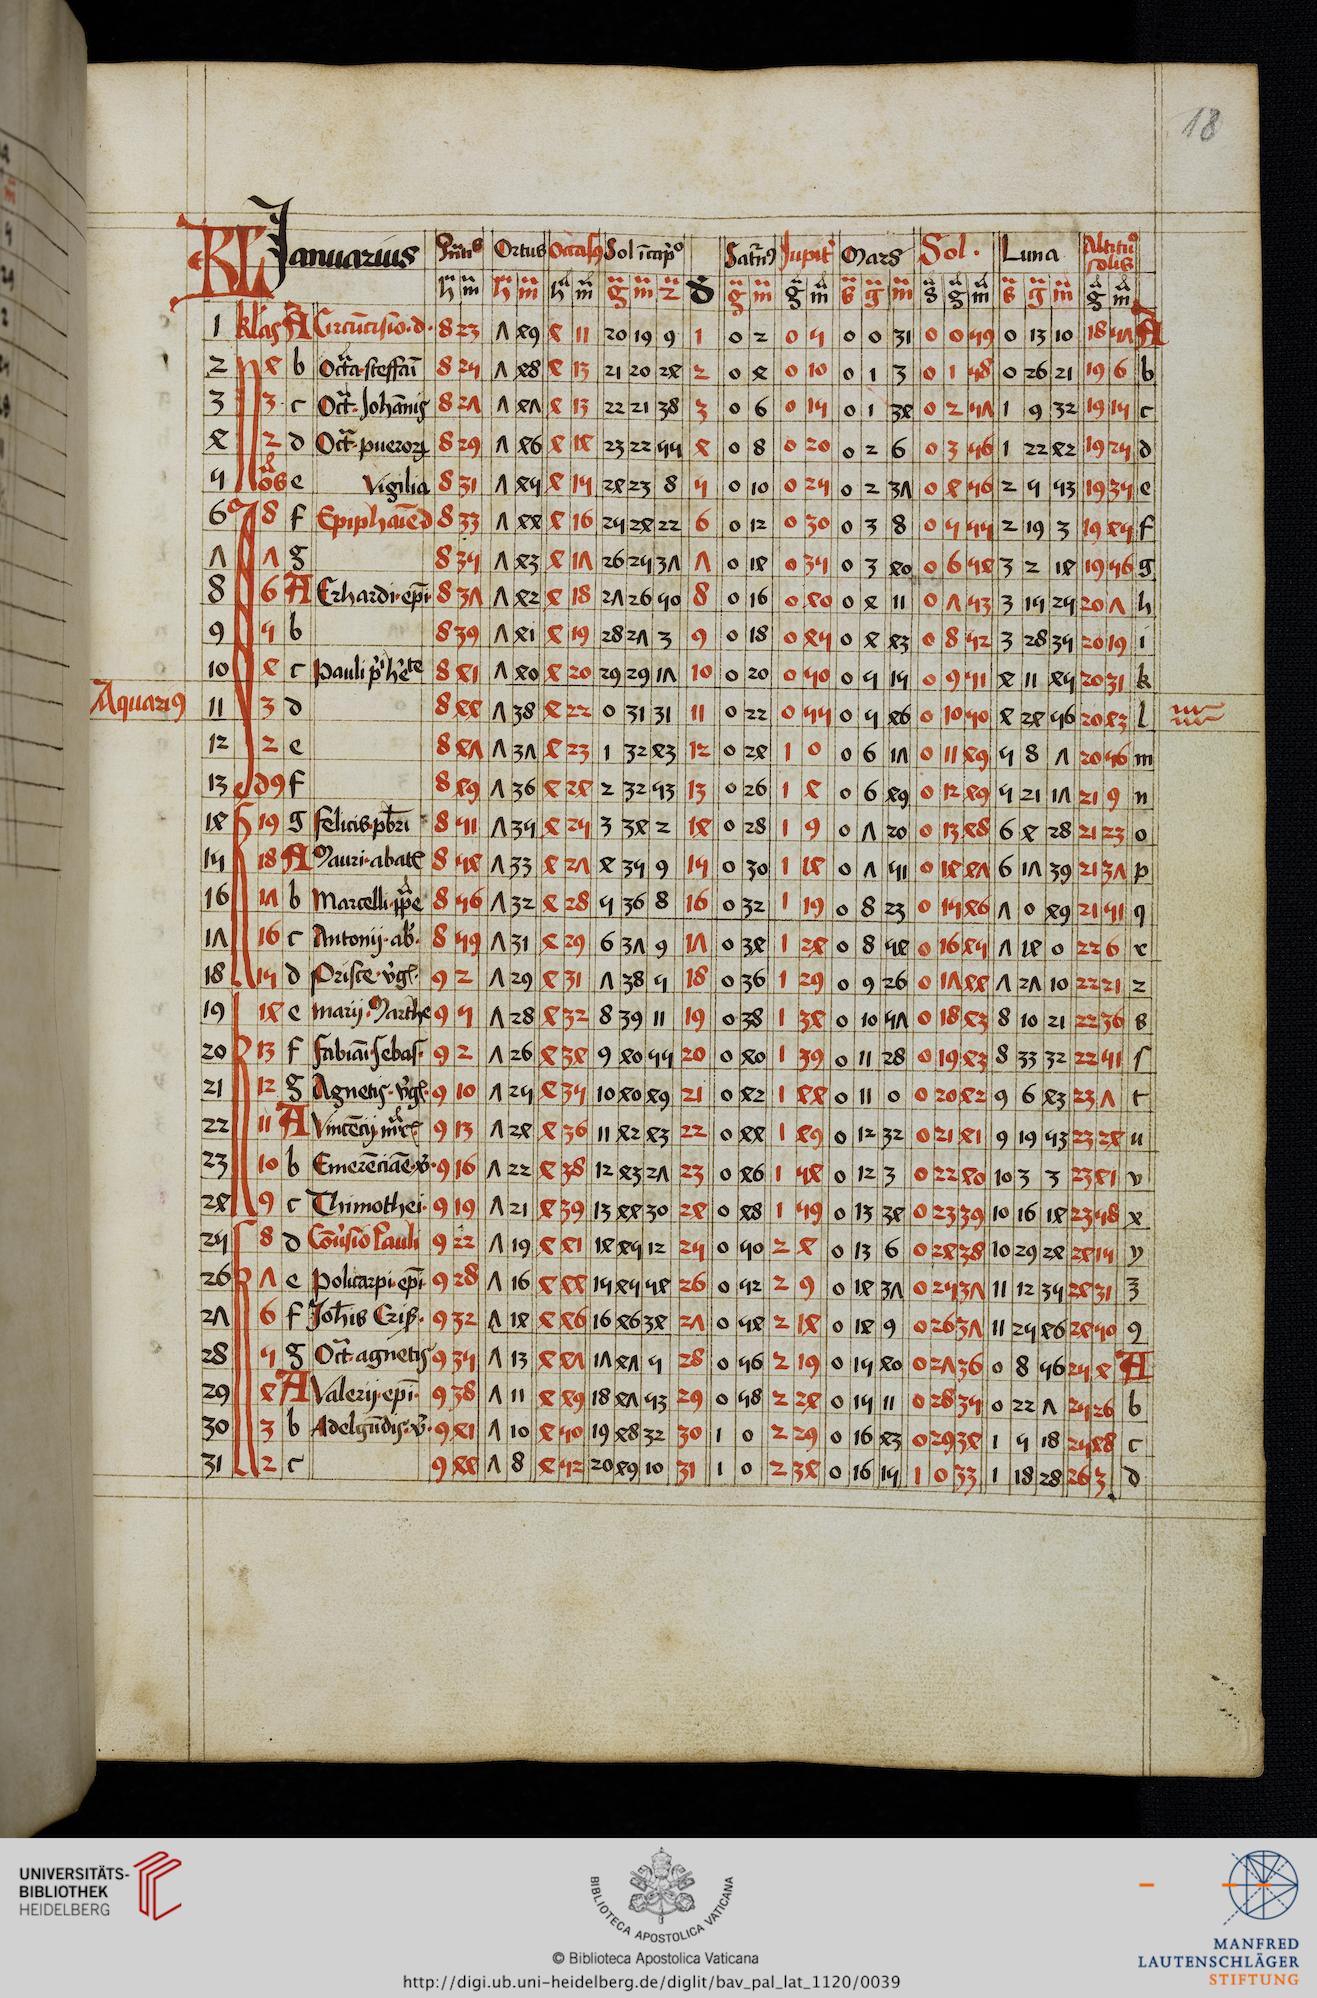 18
KL Januarius Ortus Occasus Sol Satn9 Jupit Mars Sol. Luna Altitu solis
h m h m h m g m 2 d g m g m s g m s g m s g m g m
1 A Circūcisio d. 8 23 7 49 4 11 20 19 9 1 0 2 0 5 0 0 31 0 0 59 0 13 10 18 57 A
2 4 b Octa steffani 8 25 7 48 4 13 21 20 24 2 0 4 0 10 0 1 3 0 1 58 0 26 21 19 6 b
3 3 c Oct Johanis 8 27 7 47 4 13 22 21 38 3 0 6 0 15 0 1 34 0 2 57 1 9 32 19 15 c
4 2 d Oct puerorꝝ 8 29 7 46 4 14 23 22 55 4 0 8 0 20 0 2 6 0 3 56 1 22 42 19 25 d
5 e Vigilia 8 31 7 45 4 15 24 23 8 5 0 10 0 25 0 2 37 0 4 56 2 5 53 19 35 e
6 8 f Epiphaīe d 8 33 7 44 4 16 25 24 22 6 0 12 0 30 0 3 8 0 5 55 2 19 3 19 45 f
7 7 g 8 35 7 43 4 17 26 25 37 7 0 14 0 35 0 3 40 0 6 54 3 2 14 19 56 g
8 6 A Erhardi epī 8 37 7 42 4 18 27 26 50 8 0 16 0 40 0 4 11 0 7 53 3 15 25 20 7 h
9 5 b 8 39 7 41 4 19 28 27 3 9 0 18 0 45 0 4 43 0 8 52 3 28 35 20 19 i
10 4 c Pauli 8 41 7 40 4 20 29 29 17 10 0 20 0 50 0 5 15 0 9 51 4 11 45 20 31 k
Aquari9 11 3 d 8 44 7 38 4 22 0 31 31 11 0 22 0 55 0 5 46 0 10 50 4 24 56 20 43 l
12 2 e 8 47 7 37 4 23 1 32 43 12 0 24 1 0 0 6 17 0 11 49 5 8 7 20 56 m
13 d9 f 8 49 7 36 4 24 2 32 53 13 0 26 1 4 0 6 49 0 12 49 5 21 17 21 9 n
14 19 g felicis pbri 8 51 7 35 4 25 3 34 2 14 0 28 1 9 0 7 20 0 13 48 6 4 28 21 23 o
15 18 A Mauri abate 8 54 7 33 4 27 4 35 9 15 0 30 1 14 0 7 51 0 14 47 6 17 39 21 37 p
16 17 b Marcelli ppe 8 56 7 32 4 28 5 36 8 16 0 32 1 19 0 8 23 0 15 46 7 0 49 21 51 q
17 16 c Antonij ab. 8 59 7 31 4 29 6 37 9 17 0 34 1 24 0 8 54 0 16 45 7 14 0 22 6 r
18 15 d Prisce vgi. 9 2 7 29 4 31 7 38 5 18 0 36 1 29 0 9 26 0 17 44 7 27 10 22 21 z
19 14 e marij Marthe 9 5 7 28 4 32 8 39 11 19 0 38 1 34 0 10 57 0 18 43 8 10 21 22 36 s
20 13 f fabiani sebas. 9 2 7 26 4 34 9 40 55 20 0 40 1 39 0 11 28 0 19 43 8 33 32 22 51 ſ
21 12 g Agnetis vgi. 9 10 7 25 4 35 10 40 49 21 0 42 1 44 0 11 0 0 20 42 9 6 43 23 7 t
22 11 A Vincēcij mr 9 13 7 24 4 36 11 42 43 22 0 44 1 49 0 12 32 0 21 41 9 19 53 23 24 u
23 10 b Emerēciāe v. 9 16 7 22 4 38 12 43 27 23 0 46 1 54 0 12 3 0 22 40 10 3 3 23 41 v
24 9 c Thimothei. 9 19 7 21 4 39 13 44 30 24 0 48 1 59 0 13 34 0 23 39 10 16 14 23 58 x
25 8 d Cōuſio Pauli 9 22 7 19 4 41 14 45 12 25 0 50 2 4 0 13 6 0 24 38 10 29 24 24 15 y
26 7 e policarpi epī 9 28 7 16 4 44 15 45 54 26 0 52 2 9 0 14 37 0 25 37 11 12 35 24 31 3
27 6 f Johis Criſ. 9 32 7 14 4 46 16 46 34 27 0 54 2 14 0 14 9 0 26 37 11 25 46 24 50 9
28 5 g Oct agnetis 9 35 7 13 4 47 17 47 5 28 0 56 2 19 0 15 40 0 27 36 0 8 56 25 4 A
29 4 A Valerij epī. 9 38 7 11 4 49 18 47 53 29 0 58 2 24 0 15 11 0 28 35 0 22 7 25 26 b
30 3 b Adelgūdis v. 9 41 7 10 4 50 19 48 32 30 1 0 2 29 0 16 43 0 29 34 1 5 18 25 48 c
31 2 c 9 44 7 8 4 52 20 49 10 31 1 0 2 34 0 16 15 1 0 33 1 18 28 26 3 d
UNIVERSITÄTS-
BIBLIOTHEK
HEIDELBERG
BIBLIOTECA APOSTOLICA VATICANA
© Biblioteca Apostolica Vaticana
http://digi.ub.uni-heidelberg.de/diglit/bav_pal_lat_1120/0039
MANFRED
LAUTENSCHLÄGER
STIFTUNG